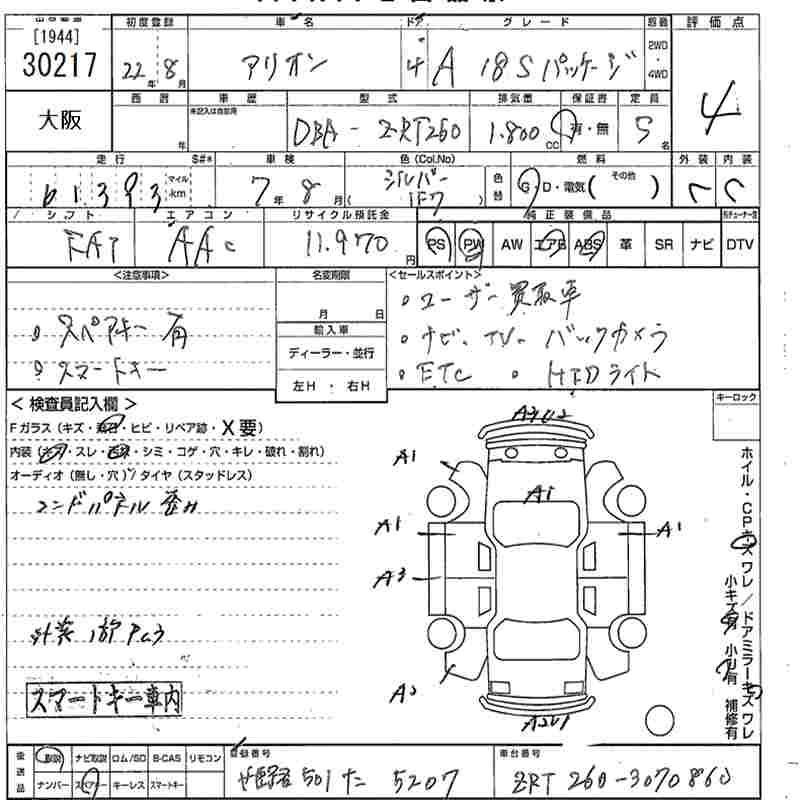 初度登録 車名 ドア グレード 駆動 評価点
[1944]
30217
22年 8月 アリオン 4 A 18S パッケージ 2WD・4WD 4
大阪
西暦 車歴 型式 排気量 保証書 定員
未記入は自家用
年 DBA - ZRT260 1.800cc 有・無 5名
走行 S#* 車検 色(Col.No) 色替 燃料 外装 内装
61,393 マイル・km 7年 8月 シルバー 1F7 G・D・電気( その他 ) C C
シフト エアコン リサイクル預託金 純正装備品
FAT AAC 11.970円 PS PW AW エアB ABS 革 SR ナビ DTV
<注意事項> 名変期限 <セールスポイント>
月 日
輸入車
ディーラー・並行
左H・右H
。スペアキー有
。スマートキー
。ユーザー買取車
。ナビ、TV、バックカメラ
。ETC 。HIDライト
キーロック
<検査員記入欄>
Fガラス(キズ・飛石・ヒビ・リペア跡・X要)
内装(キズ・スレ・汚れ・シミ・コゲ・穴・キレ・破れ・割れ)
オーディオ(無し・穴)/タイヤ(スタッドレス)
エンドパネル歪み
外装 1部 Pムラ
スマートキー車内
A3 U2
A1
A1
A1
A1
A3
A2
A2U1
ホイル・CPキズ ワレ/ドアミラーキズ ワレ
小キズ有 小U有 補修有
後送品 取説 ナビ取説 ロム/SD B-CAS リモコン
ナンバー スペアキー キーレス スマートキー
登録番号 501 た 5207
車台番号 ZRT260-3070860